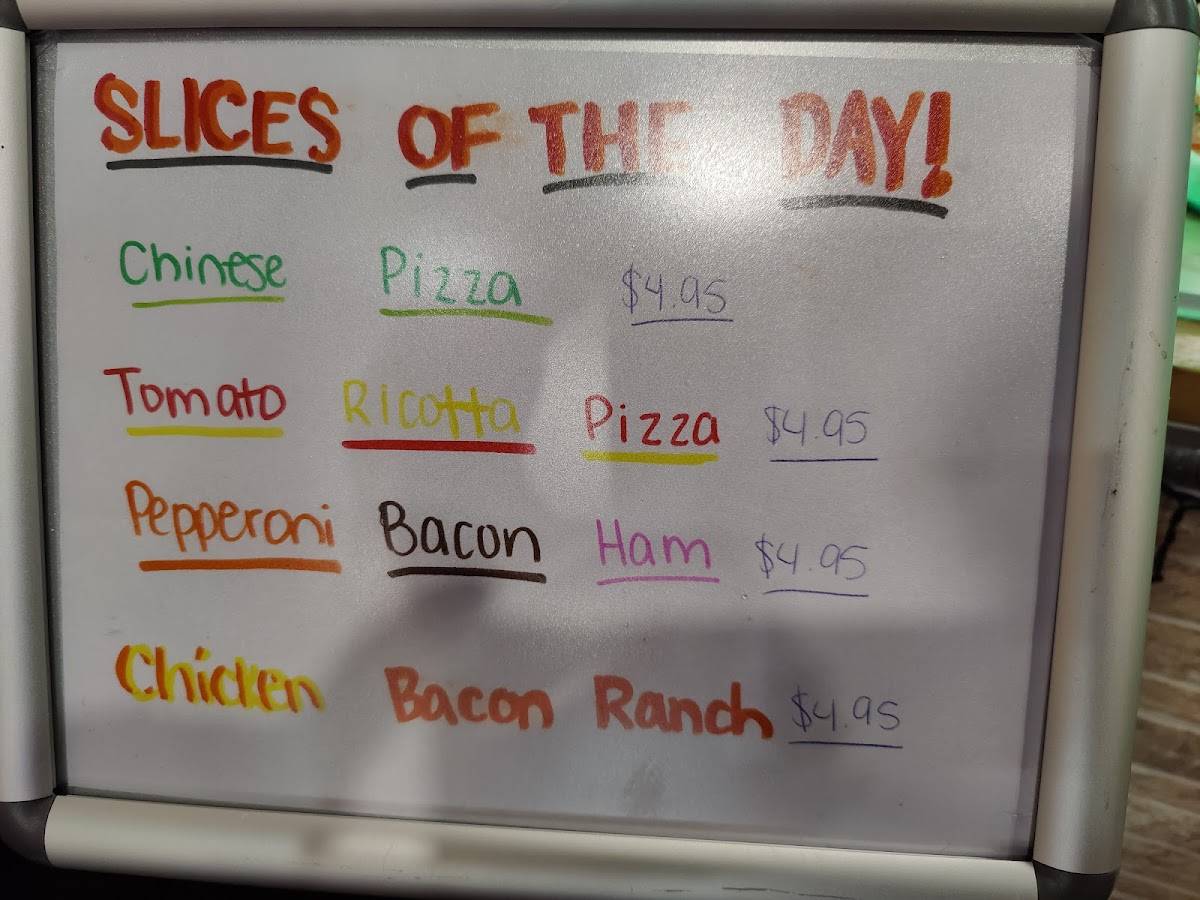 SLICES OF THE DAY!
Chinese Pizza $4.95
Tomato Ricotta Pizza $4.95
Pepperoni Bacon Ham $4.95
Chicken Bacon Ranch $4.95